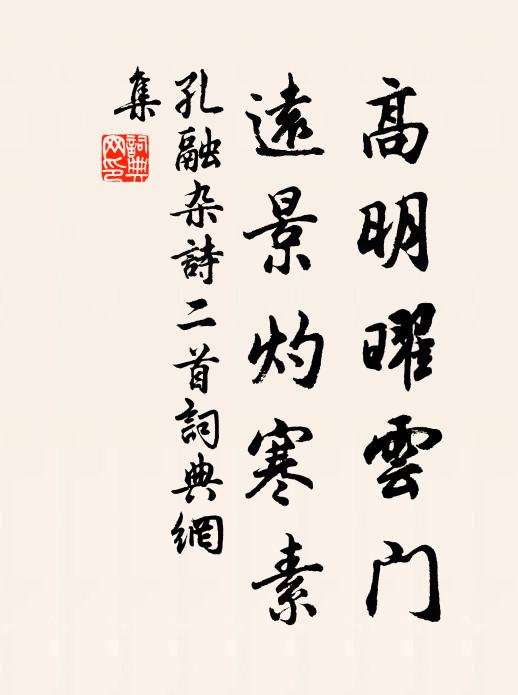 高明曜雲門
遠景灼寒素
孔融杂詩二首詞典網
集
詞典網印